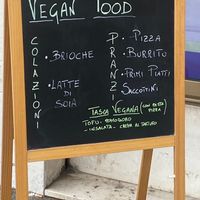 VEGAN FOOD
COLAZIONI
• BRIOCHE
• LATTE DI SOIA
PRANZI
• PIZZA
• BURRITO
• PRIMI PIATTI
• SACCOTTINI
TASCA VEGANA (CON PASTA PIZZA)
TOFU - POMODORO
- INSALATA - CREMA AL TARTUFO